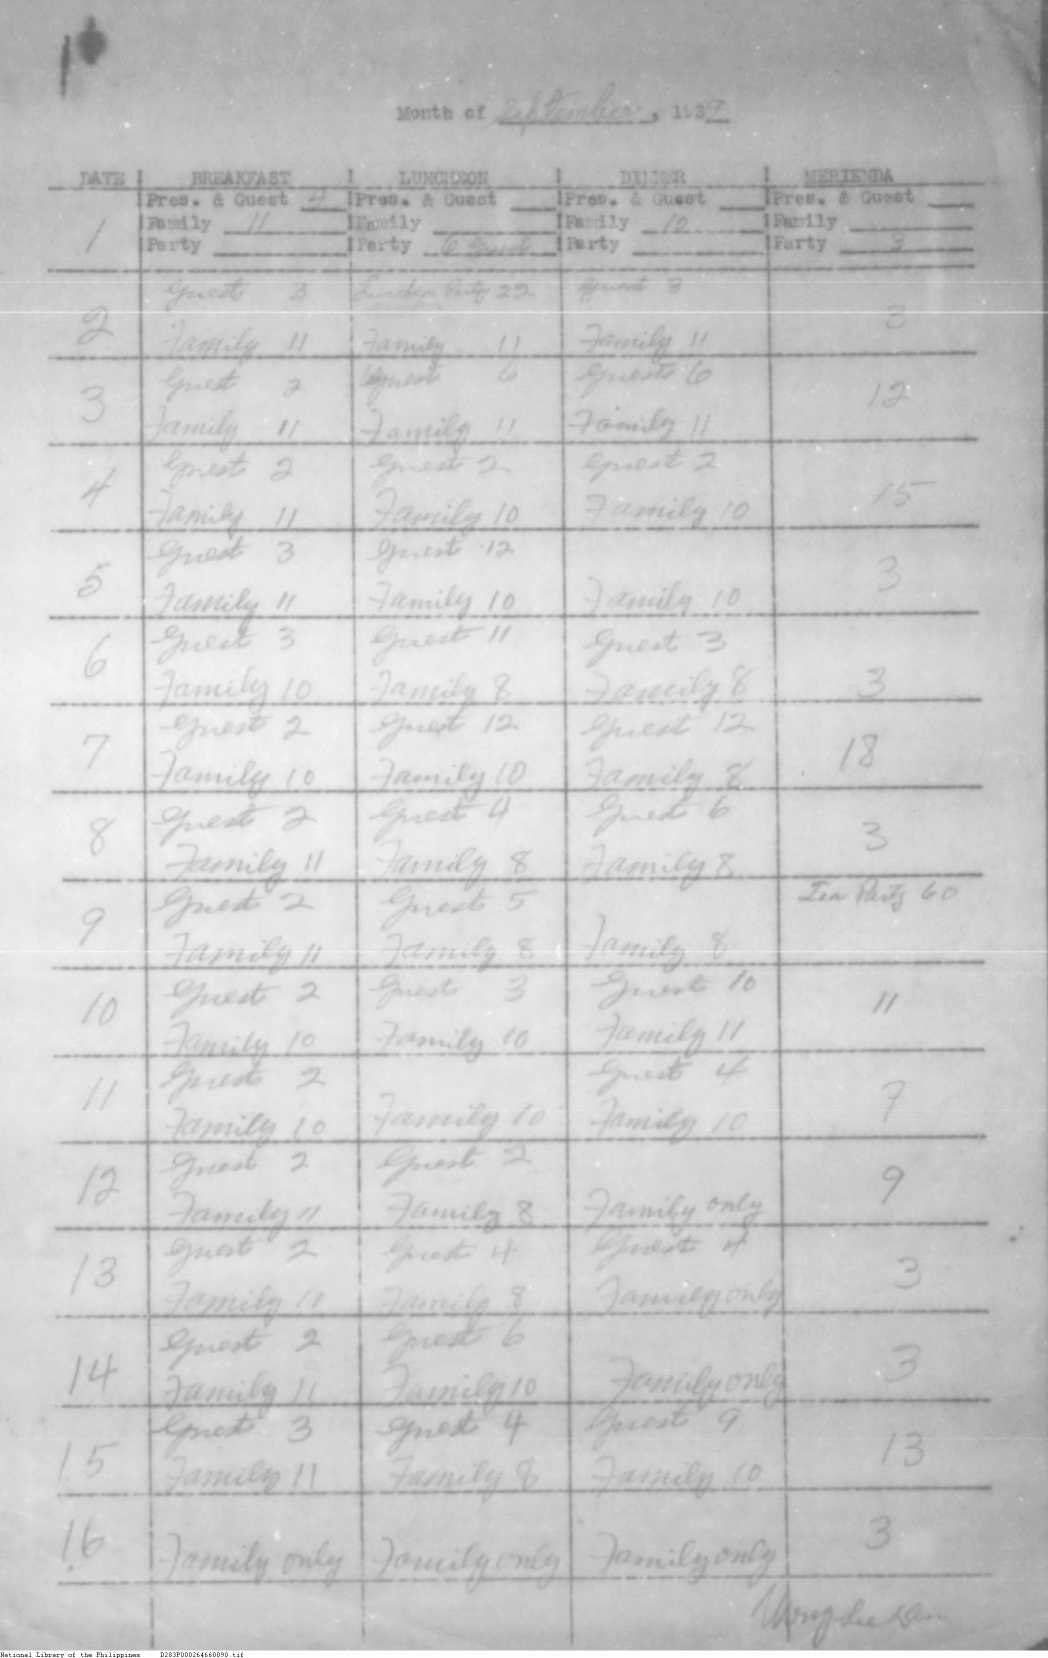 Month of September, 1939
DATE ! BREAKFAST ! LUNCHEON ! DINNER ! MERIENDA
1 !Pres. & Guest 4 !Pres. & Guest ___ !Pres. & Guest ___ !Pres. & Guest ___
!Family 11 !Family ___ !Family 10 !Family ___
!Party ___ !Party 6 Guest !Party ___ !Party 3
2 Guest 3 Party 22 Guest 3 3
Family 11 Family 11 Family 11
3 Guest 2 Guest 6 Guests 6 12
Family 11 Family 11 Family 11
4 Guest 2 Guest 2 Guest 2 15
Family 11 Family 10 Family 10
5 Guest 3 Guest 12 3
Family 11 Family 10 Family 10
6 Guest 3 Guest 11 Guest 3 3
Family 10 Family 8 Family 8
7 Guest 2 Guest 12 Guest 12 18
Family 10 Family 10 Family 8
8 Guest 2 Guest 4 Guest 6 3
Family 11 Family 8 Family 8
9 Guest 2 Guest 5 Tea Party 60
Family 11 Family 8 Family 8
10 Guest 2 Guest 3 Guest 10 11
Family 10 Family 10 Family 11
11 Guest 2 Guest 4 9
Family 10 Family 10 Family 10
12 Guest 2 Guest 2 9
Family 11 Family 8 Family only
13 Guest 2 Guest 4 Guest 4 3
Family 11 Family 8 Family only
14 Guest 2 Guest 6 3
Family 11 Family 10 Family only
15 Guest 3 Guest 4 Guest 9 13
Family 11 Family 8 Family 10
16 3
Family only Family only Family only
National Library of the Philippines D283P000264660890.tif